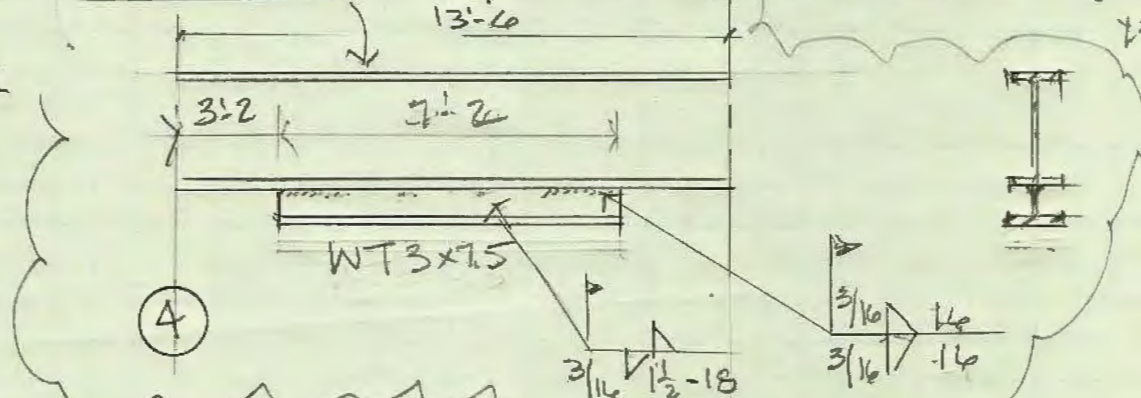 13'-6
3'-2
7'-2
WT3x7.5
4
3/16 1½-18
3/16 16
3/16 16